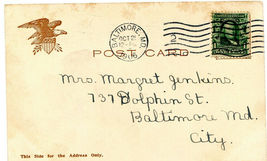 BALTIMORE, MD.
OCT 2
1906
2
POST CARD
Mrs. Margret Jenkins.
737 Dolphin St.
Baltimore Md.
City.
This Side for the Address Only.